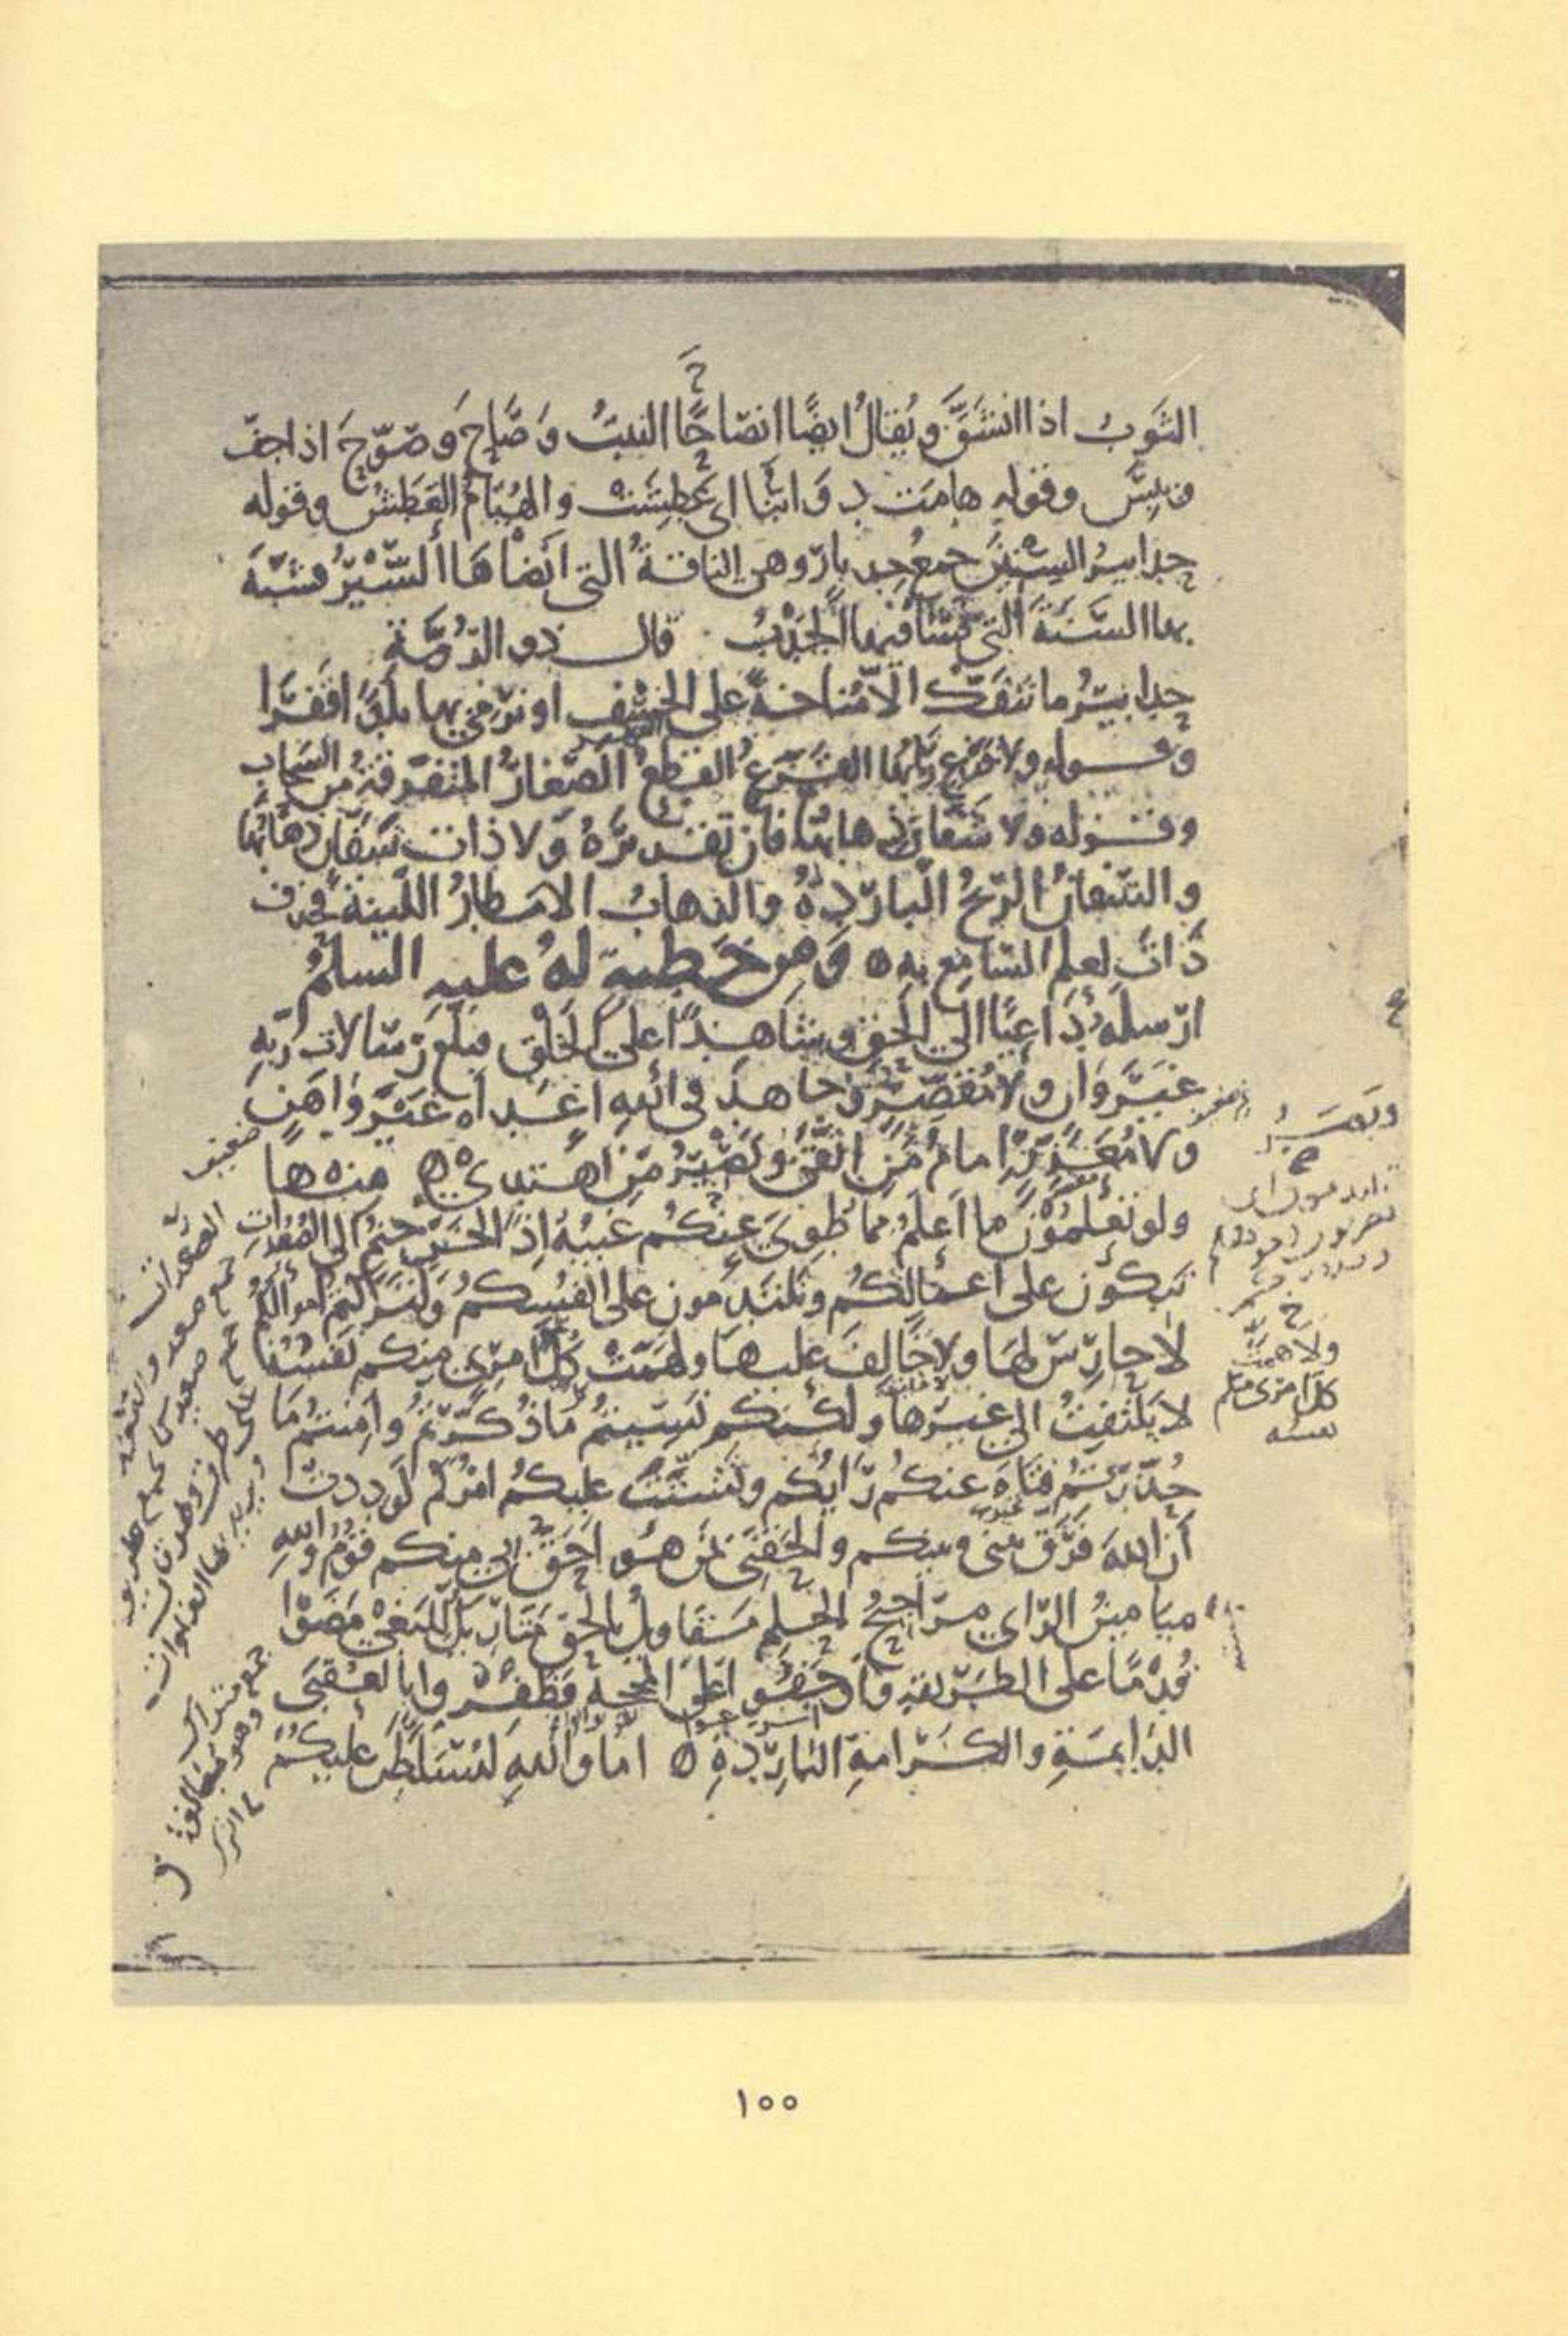 الثوب اذا انشق ويقال ايضا انصاح النبت وصاح وصوح اذا جف
ويبس وقوله هامت دوابنا اى عطشت والهيام العطش وقوله
حدابير السنين جمع حدبار وهى الناقة التى انضاها السير فشبه
بها السنة التى فشا فيها الجدب قال ذو الرمة
حدابير ما تنفك الا مناخة على الخسف او نرمي بها بلدا قفرا
وقوله ولا قزع ربابها القزع القطع الصغار المتفرقة من السحاب
وقوله ولا شفان ذهابها فان تقديره ولا ذات شفان ذهابها
والشفان الريح الباردة والذهاب الامطار اللينة فحذف
ذات لعلم السامع به ه ومن خطبة له عليه السلم
ارسله داعيا الى الحق وشاهدا على الخلق فبلغ رسالات ربه
غير وان ولا مقصر وجاهد فى الله اعداه غير واهن
ولا معذر امام من اتقى وبصر من اهتدى ه منها
ولو تعلمون ما اعلم مما طوى عنكم غيبه اذا لخرجتم الى الصعدات
تبكون على اعمالكم وتلتدمون على انفسكم ولتركتم اموالكم
لا حارس لها ولا خالف عليها ولهمت كل امرى منكم نفسه
لا يلتفت الى غيرها ولكنكم نسيتم ما ذكرتم وامنتم ما
حذرتم فتاه عنكم رايكم وتشتت عليكم امركم لوددت
ان الله فرق بينى وبينكم والحقنى بمن هو احق بى منكم قوم والله
ميامين الراى مراجيح الحلم مقاويل بالحق متاريك للبغى مضوا
قدما على الطريقة واوجفوا على المحجة فظفروا بالعقبى
الدايمة والكرامة الباردة ه اما والله ليسلطن عليكم
ضعيف
الصعدات
وبصر
ولا همت
كل امرى منكم
نفسه
١٠٠